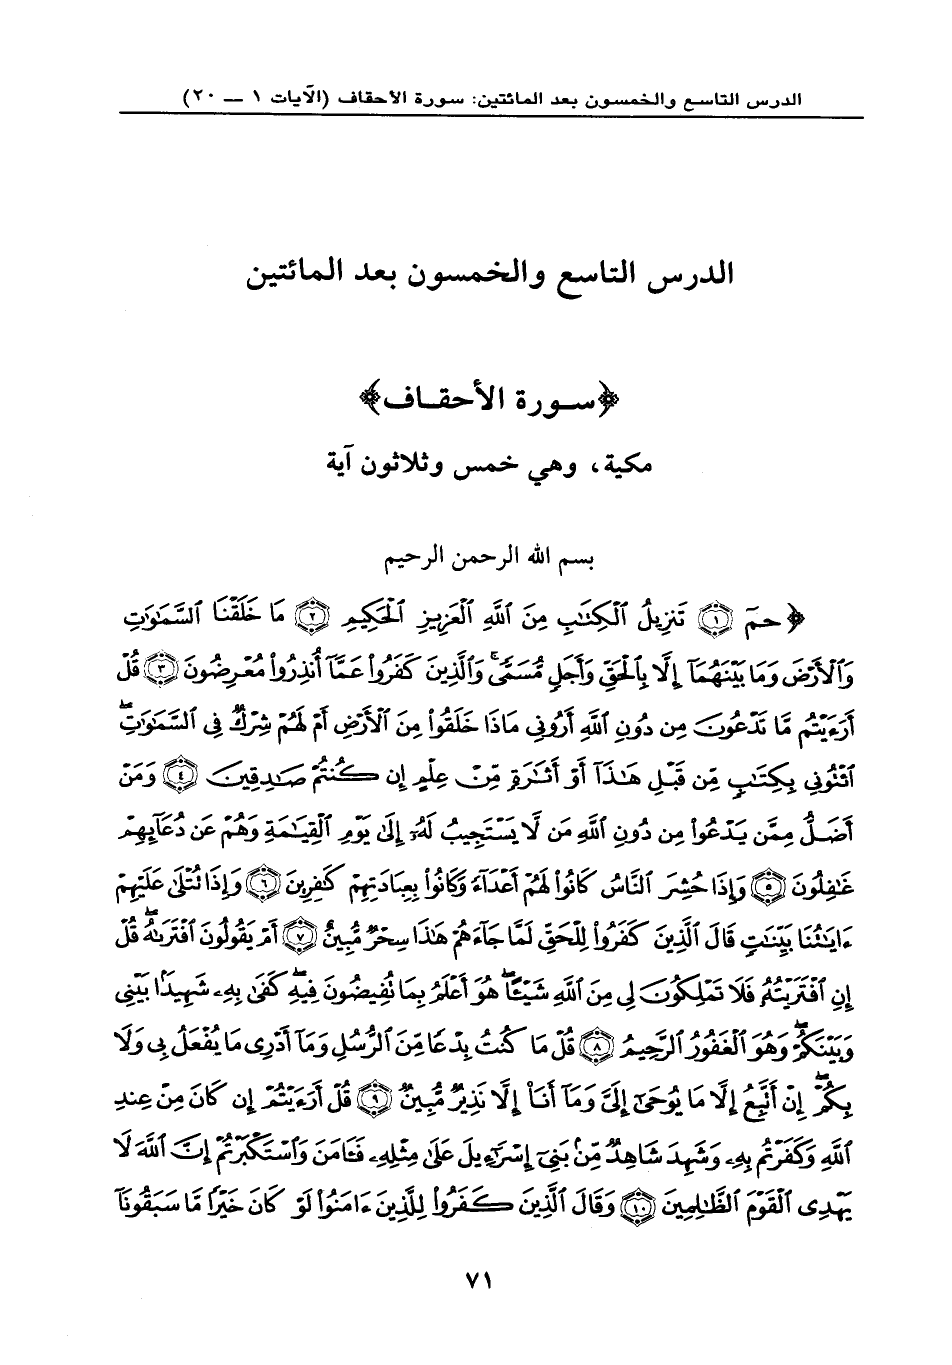 الدرس التاسع والخمسون بعد المائتين: سورة الأحقاف (الآيات ١ — ٢٠)
الدرس التاسع والخمسون بعد المائتين
﴿سورة الأحقاف﴾
مكية، وهي خمس وثلاثون آية
بسم الله الرحمن الرحيم
﴿ حمٓ ۝١ تَنزِيلُ ٱلْكِتَٰبِ مِنَ ٱللَّهِ ٱلْعَزِيزِ ٱلْحَكِيمِ ۝٢ مَا خَلَقْنَا ٱلسَّمَٰوَٰتِ
وَٱلْأَرْضَ وَمَا بَيْنَهُمَآ إِلَّا بِٱلْحَقِّ وَأَجَلٍ مُّسَمًّى ۚ وَٱلَّذِينَ كَفَرُوا۟ عَمَّآ أُنذِرُوا۟ مُعْرِضُونَ ۝٣ قُلْ
أَرَءَيْتُم مَّا تَدْعُونَ مِن دُونِ ٱللَّهِ أَرُونِى مَاذَا خَلَقُوا۟ مِنَ ٱلْأَرْضِ أَمْ لَهُمْ شِرْكٌ فِى ٱلسَّمَٰوَٰتِ ۖ
ٱئْتُونِى بِكِتَٰبٍ مِّن قَبْلِ هَٰذَآ أَوْ أَثَٰرَةٍ مِّنْ عِلْمٍ إِن كُنتُمْ صَٰدِقِينَ ۝٤ وَمَنْ
أَضَلُّ مِمَّن يَدْعُوا۟ مِن دُونِ ٱللَّهِ مَن لَّا يَسْتَجِيبُ لَهُۥٓ إِلَىٰ يَوْمِ ٱلْقِيَٰمَةِ وَهُمْ عَن دُعَآئِهِمْ
غَٰفِلُونَ ۝٥ وَإِذَا حُشِرَ ٱلنَّاسُ كَانُوا۟ لَهُمْ أَعْدَآءً وَكَانُوا۟ بِعِبَادَتِهِمْ كَٰفِرِينَ ۝٦ وَإِذَا تُتْلَىٰ عَلَيْهِمْ
ءَايَٰتُنَا بَيِّنَٰتٍ قَالَ ٱلَّذِينَ كَفَرُوا۟ لِلْحَقِّ لَمَّا جَآءَهُمْ هَٰذَا سِحْرٌ مُّبِينٌ ۝٧ أَمْ يَقُولُونَ ٱفْتَرَىٰهُ ۖ قُلْ
إِنِ ٱفْتَرَيْتُهُۥ فَلَا تَمْلِكُونَ لِى مِنَ ٱللَّهِ شَيْـًٔا ۖ هُوَ أَعْلَمُ بِمَا تُفِيضُونَ فِيهِ ۖ كَفَىٰ بِهِۦ شَهِيدًۢا بَيْنِى
وَبَيْنَكُمْ ۖ وَهُوَ ٱلْغَفُورُ ٱلرَّحِيمُ ۝٨ قُلْ مَا كُنتُ بِدْعًا مِّنَ ٱلرُّسُلِ وَمَآ أَدْرِى مَا يُفْعَلُ بِى وَلَا
بِكُمْ ۖ إِنْ أَتَّبِعُ إِلَّا مَا يُوحَىٰٓ إِلَىَّ وَمَآ أَنَا۠ إِلَّا نَذِيرٌ مُّبِينٌ ۝٩ قُلْ أَرَءَيْتُمْ إِن كَانَ مِنْ عِندِ
ٱللَّهِ وَكَفَرْتُم بِهِۦ وَشَهِدَ شَاهِدٌ مِّنۢ بَنِىٓ إِسْرَٰٓءِيلَ عَلَىٰ مِثْلِهِۦ فَـَٔامَنَ وَٱسْتَكْبَرْتُمْ ۖ إِنَّ ٱللَّهَ لَا
يَهْدِى ٱلْقَوْمَ ٱلظَّٰلِمِينَ ۝١٠ وَقَالَ ٱلَّذِينَ كَفَرُوا۟ لِلَّذِينَ ءَامَنُوا۟ لَوْ كَانَ خَيْرًا مَّا سَبَقُونَآ
٧١